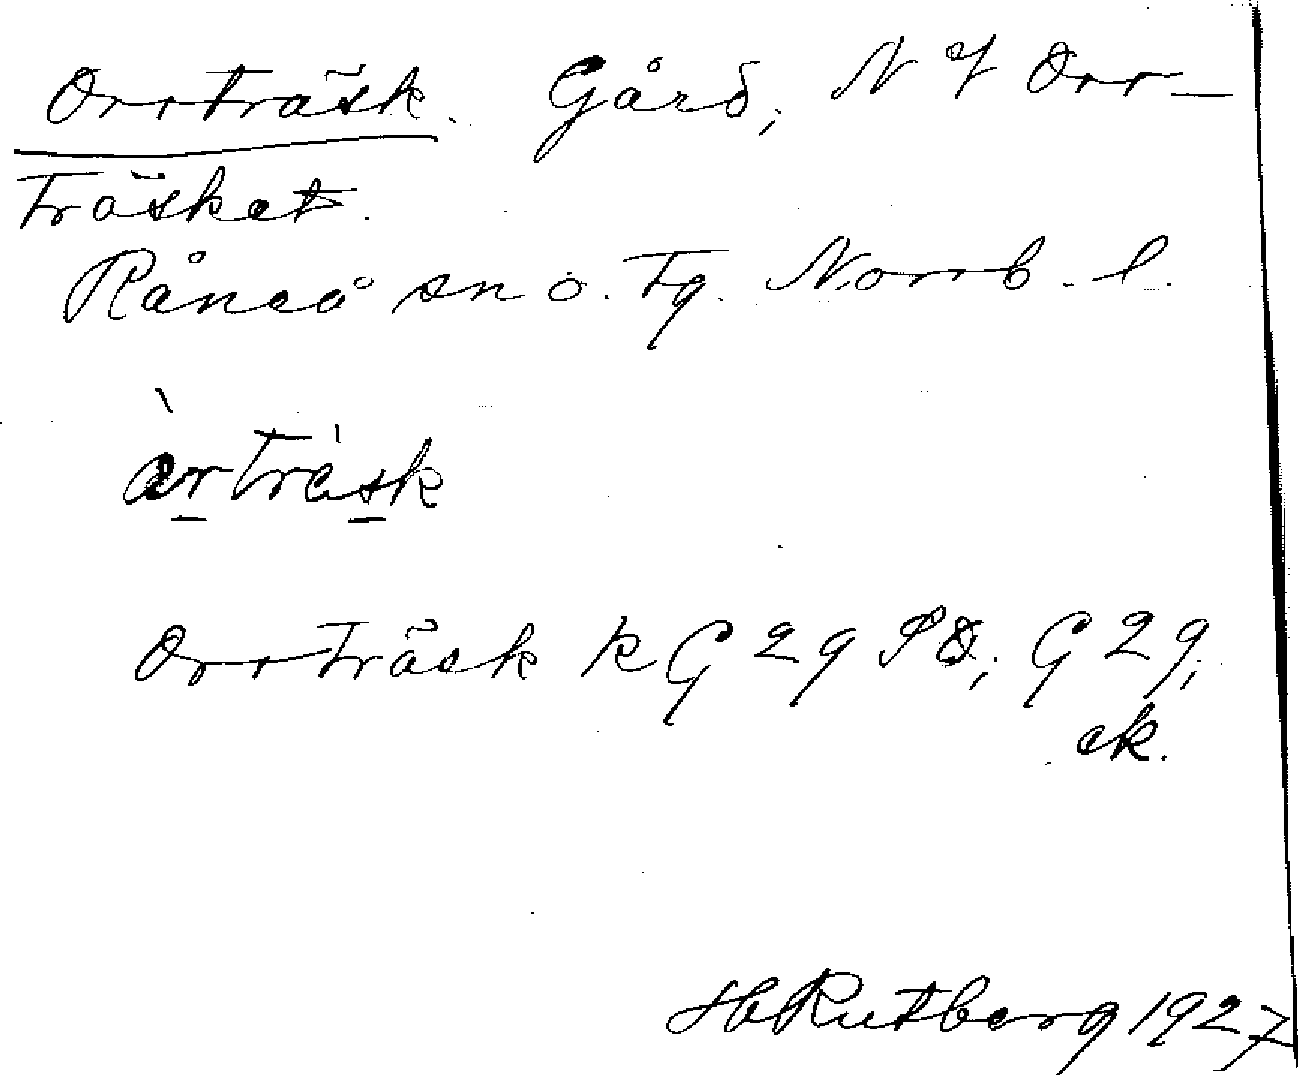 Orrträsk. Gård, N f Orr-
träsket.
Råneå sn o. tg. Norrb. l.
àrtràsk
Orrträsk RG 29 SO; G 29;
ek.
H Rutberg 1927